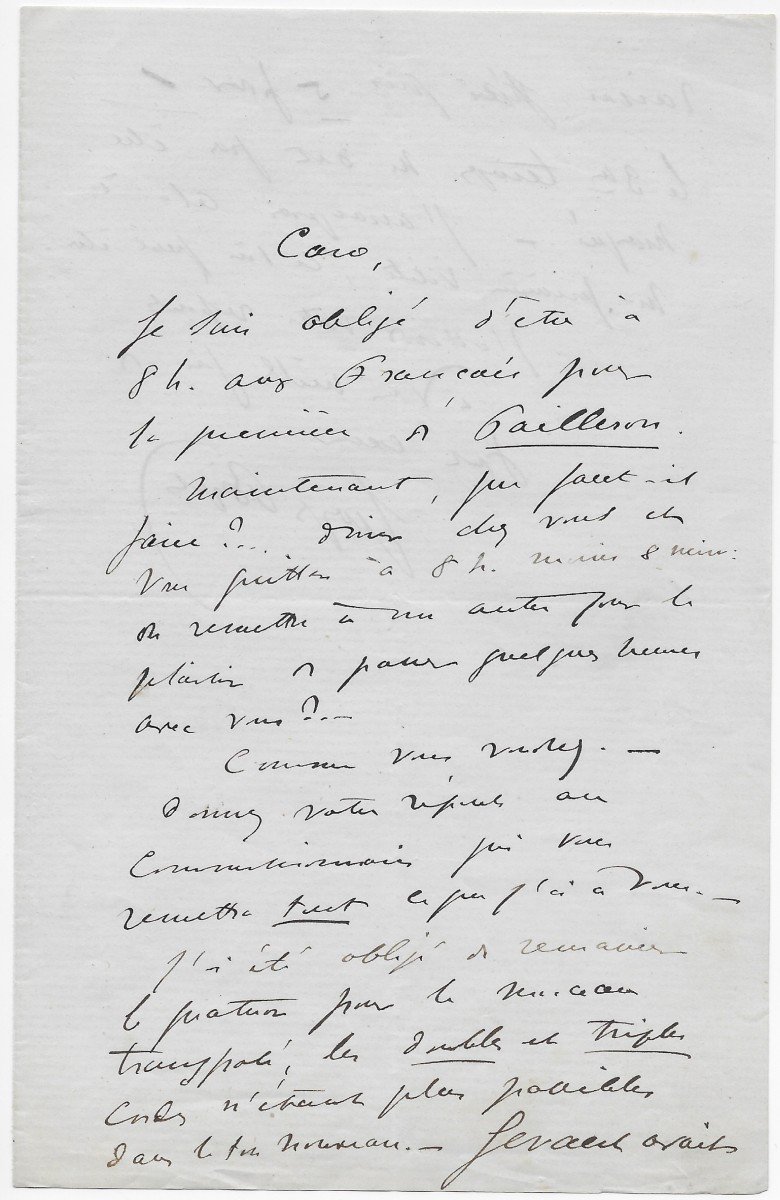 Caro,
Je suis obligé d'être à
8 h. aux Français pour
la première de Pailleron.
Maintenant, que faut-il
faire?... diner chez vous et
vous quitter à 8 h. moins 8 min:
ou remettre à un autre jour le
plaisir de passer quelques heures
avec vous?—
Comme vous voudrez. —
Donnez votre réponse au
Commissionnaire qui vous
remettra tout ce que j'ai à vous. —
J'ai été obligé de remanier
le quatuor pour le morceau
transposé, les doubles et triples
cordes n'étant plus possibles
dans le ton nouveau. — Gevaert avait